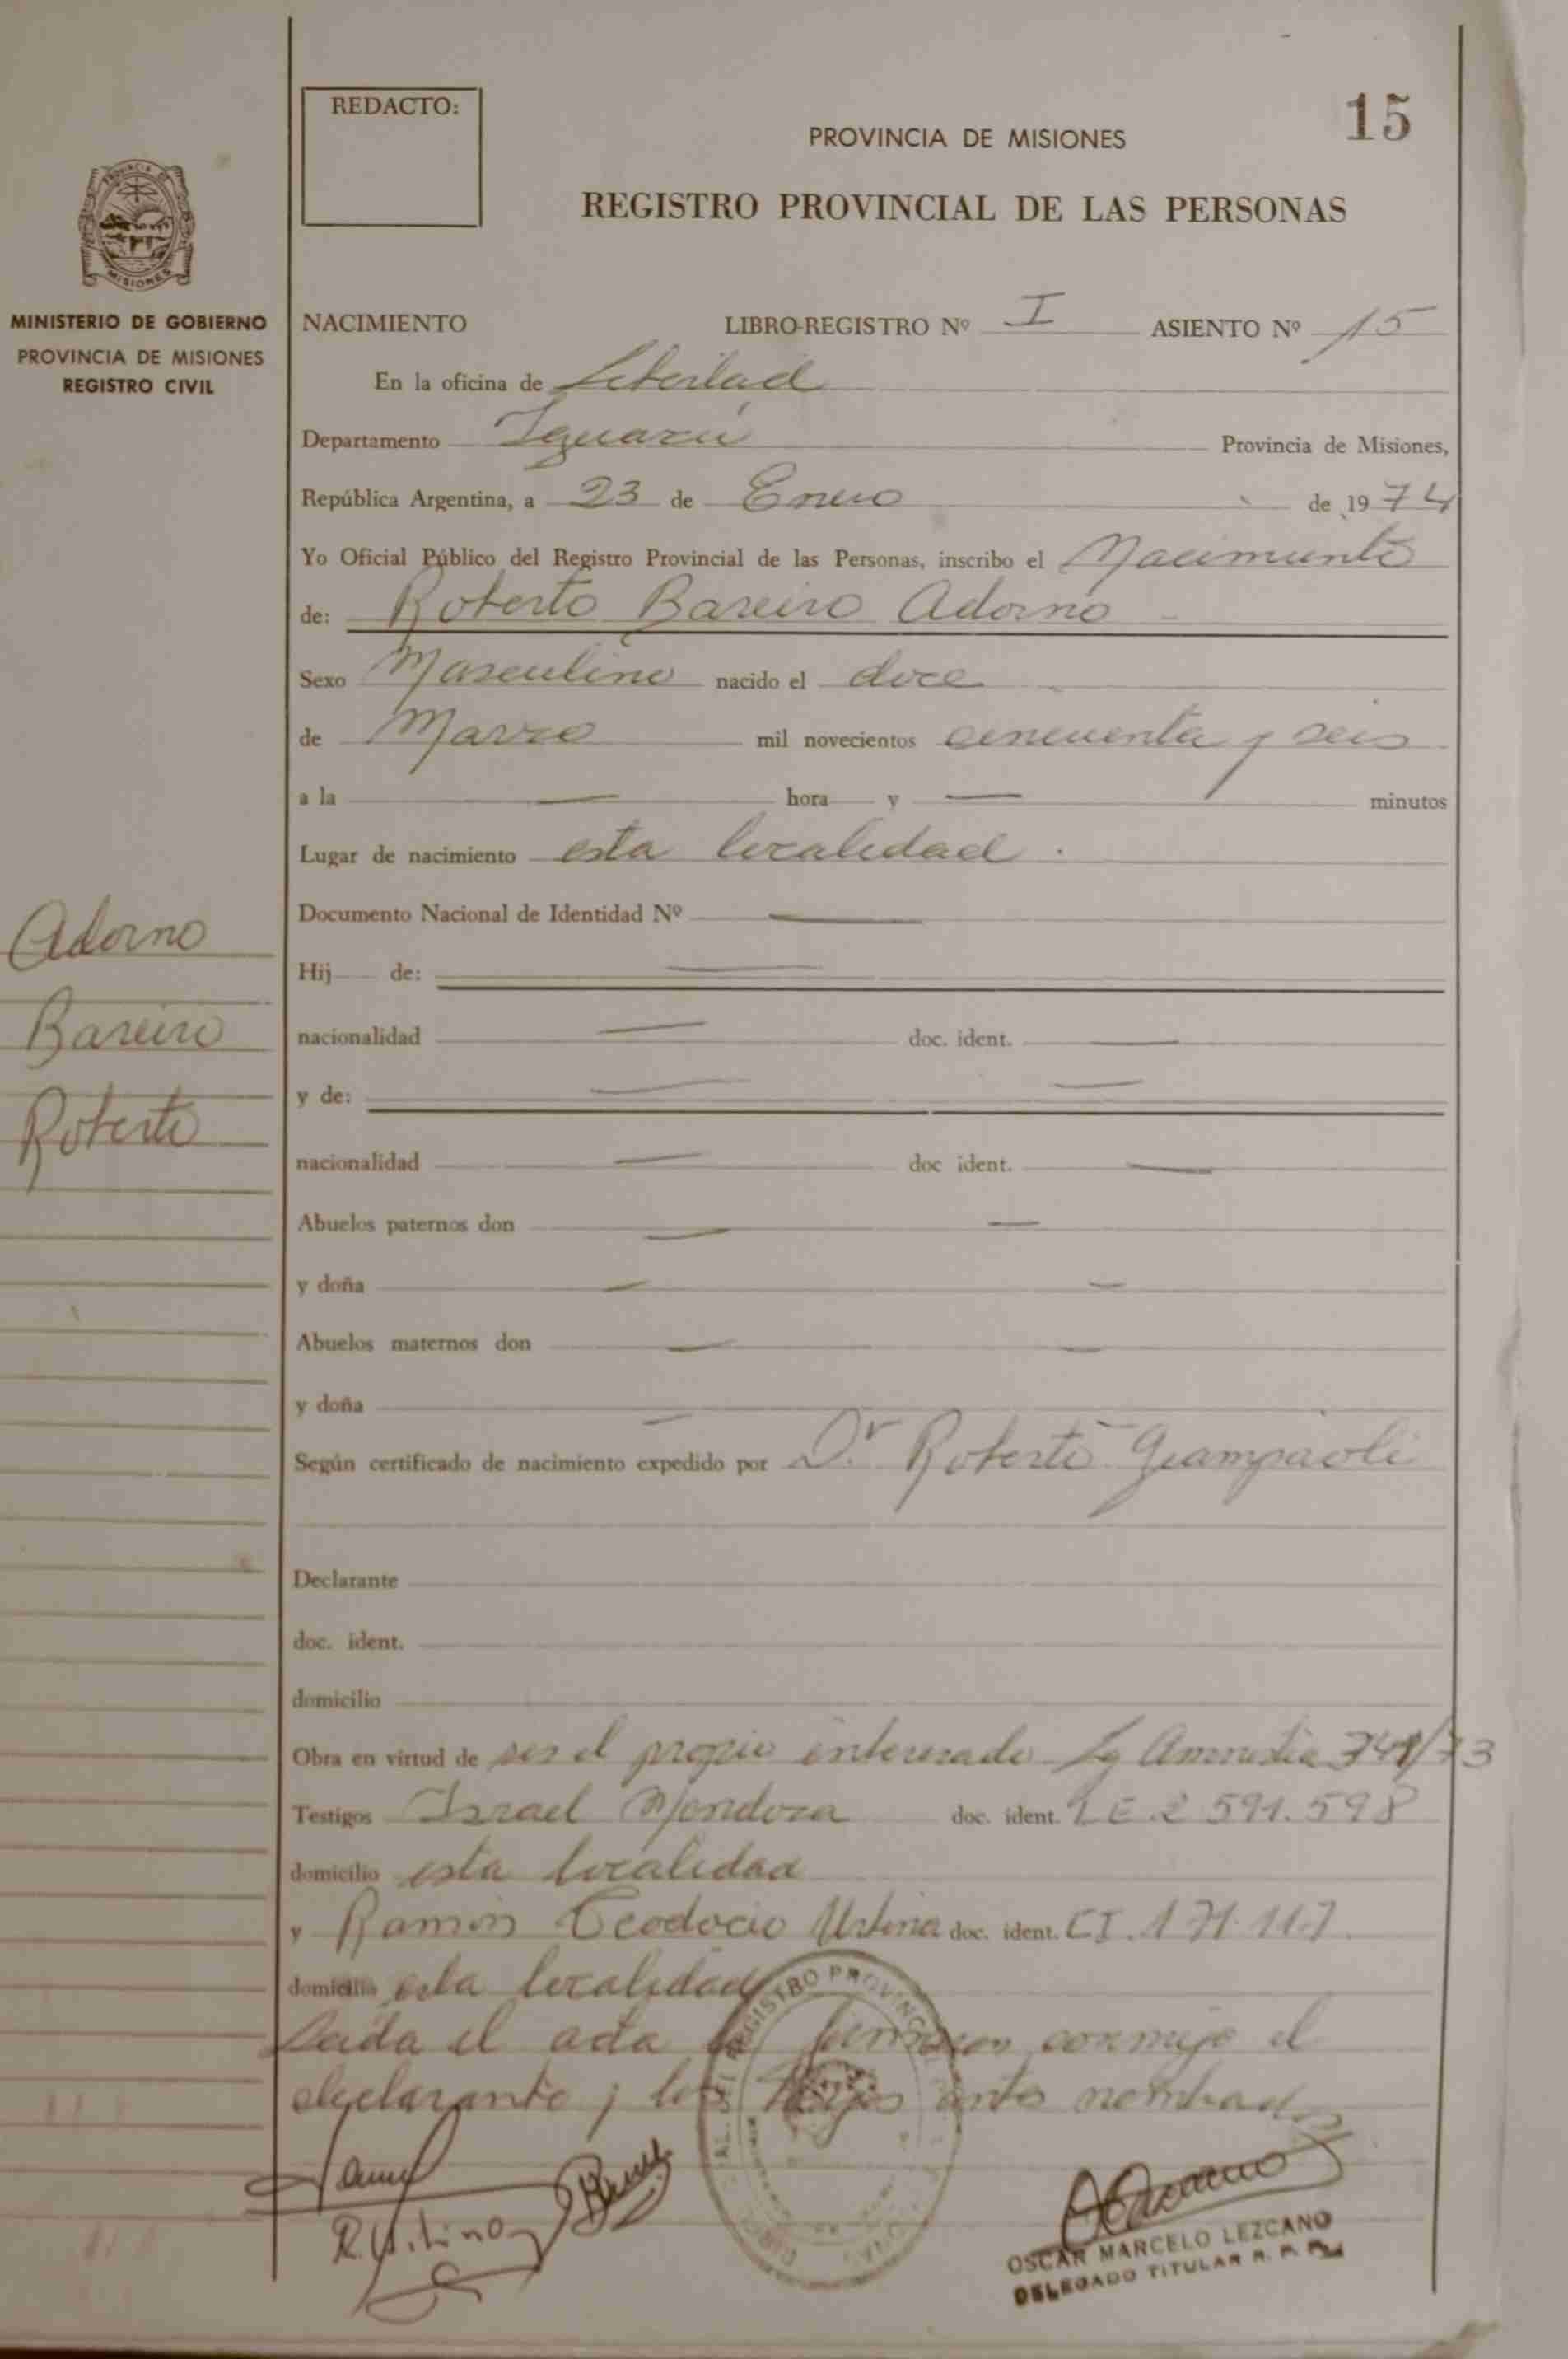 REDACTO:
15
PROVINCIA DE MISIONES
REGISTRO PROVINCIAL DE LAS PERSONAS
MISIONES
MINISTERIO DE GOBIERNO
PROVINCIA DE MISIONES
REGISTRO CIVIL
NACIMIENTO LIBRO-REGISTRO Nº I ASIENTO Nº 15
En la oficina de Libertad
Departamento Iguazú Provincia de Misiones,
República Argentina, a 23 de Enero de 1974
Yo Oficial Público del Registro Provincial de las Personas, inscribo el Nacimiento
de: Roberto Bareiro Adorno
Sexo Masculino nacido el doce
de Marzo mil novecientos cincuenta y seis
a la — hora y — minutos
Lugar de nacimiento esta localidad.
Documento Nacional de Identidad Nº —
Adorno
Bareiro
Roberto
Hij de: —
nacionalidad — doc. ident. —
y de: — —
nacionalidad — doc ident. —
Abuelos paternos don — —
y doña — —
Abuelos maternos don — —
y doña —
Según certificado de nacimiento expedido por Dr Roberto Giampaoli
Declarante
doc. ident.
domicilio
Obra en virtud de ser el propio interesado Ley Amnistia /73
Testigos Israel Mendoza doc. ident. LE 2 591.598
domicilio esta localidad
y Ramón Teodocio doc. ident. CI. 171.117
domicilio esta localidad
Leida el acta firman conmigo el
declarante y los antes nombrados
OSCAR MARCELO LEZCANO
DELEGADO TITULAR R. P. P.